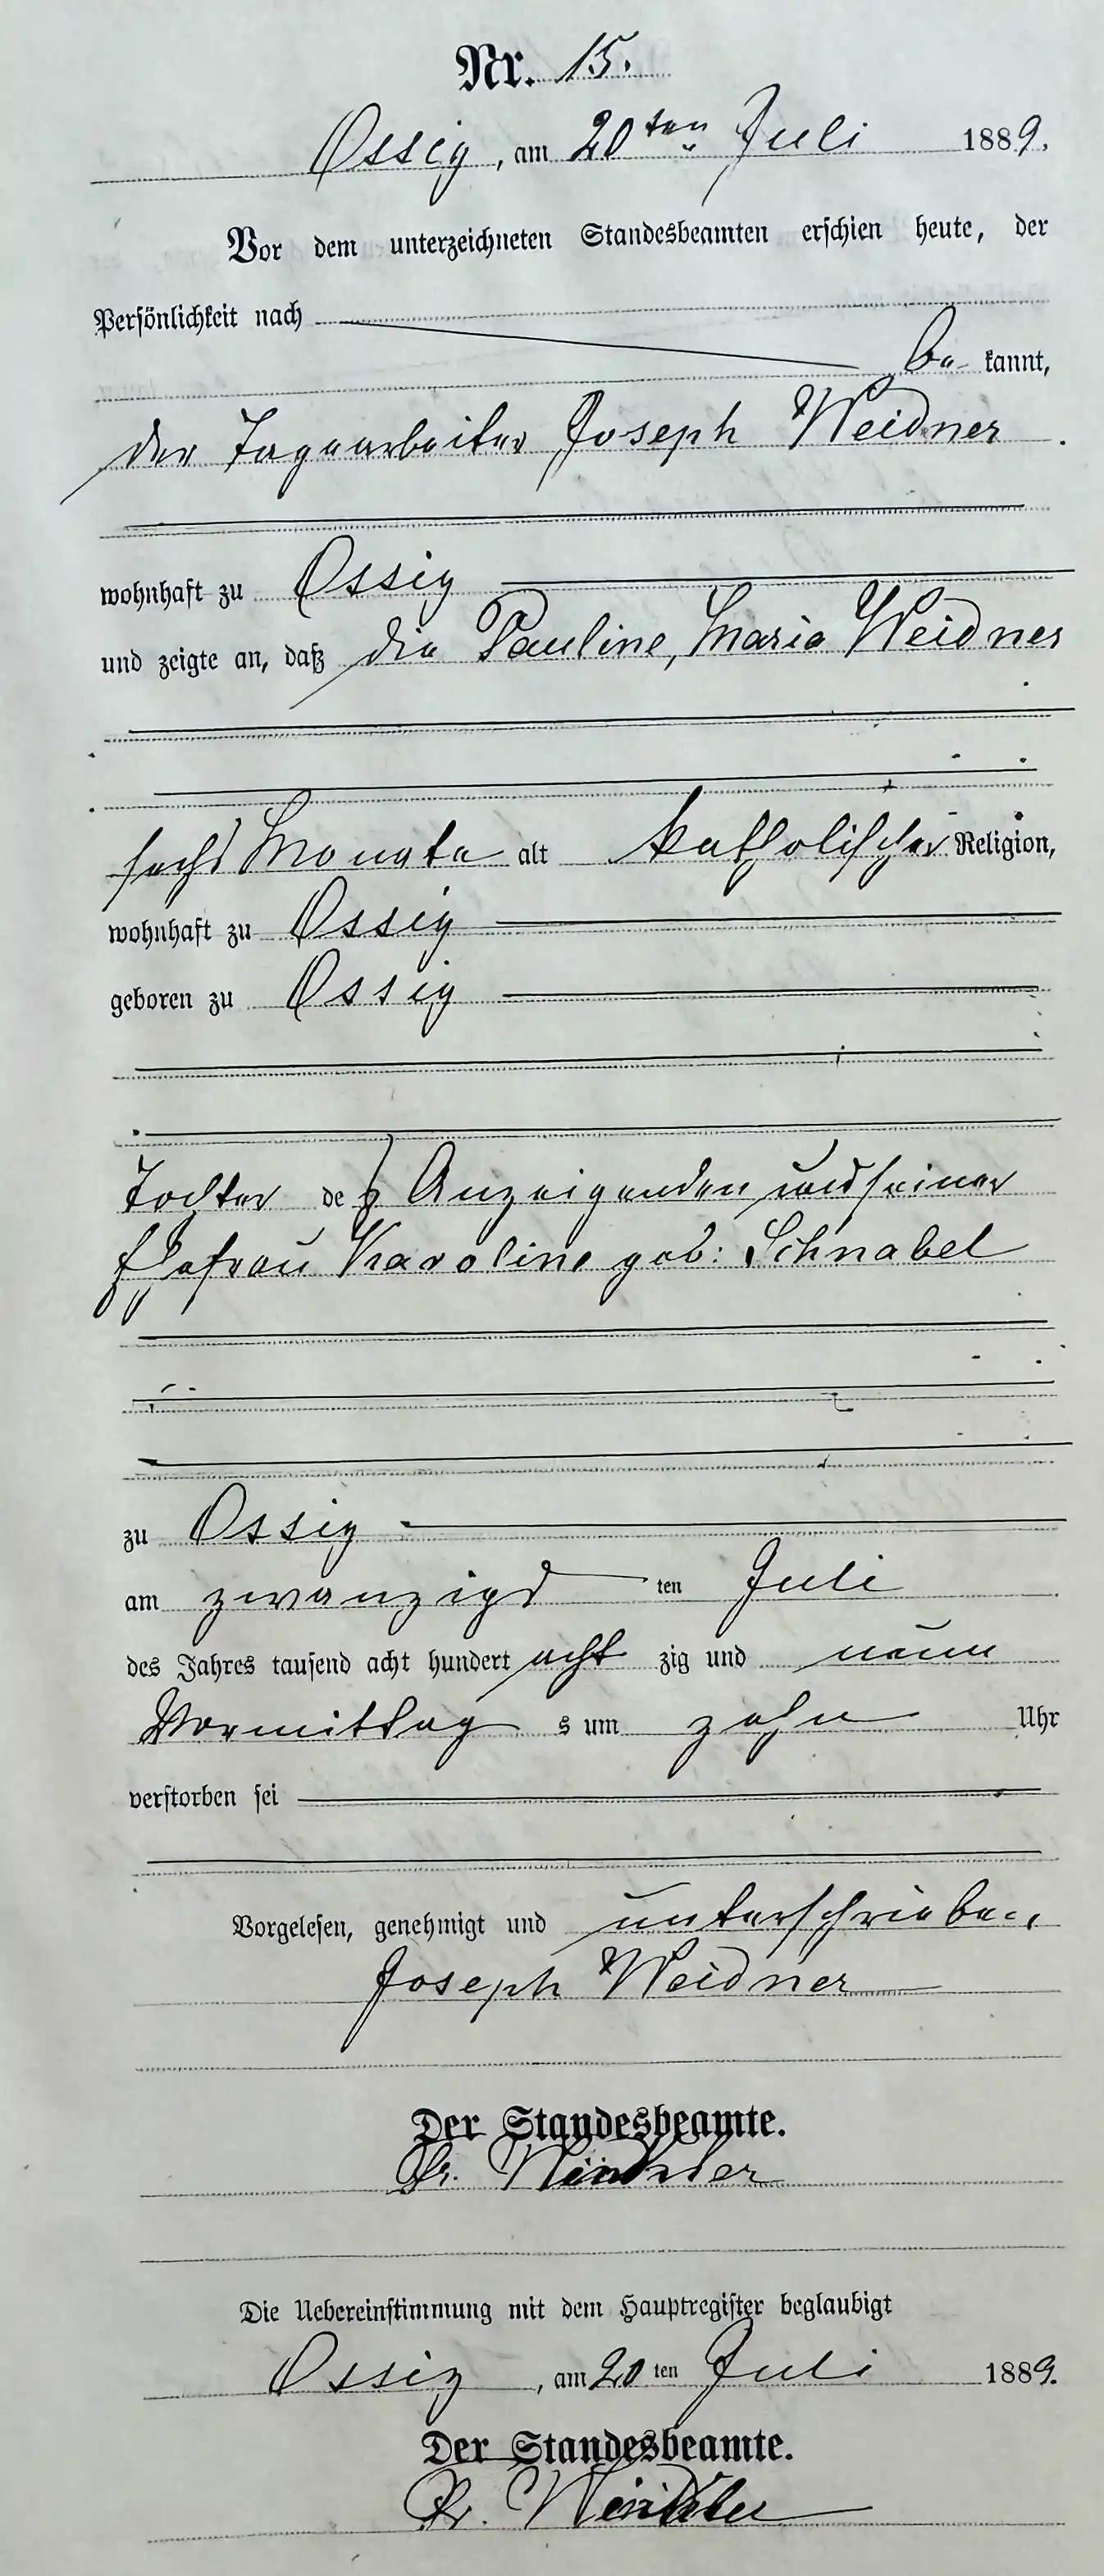 Nr. 15.
Ossig, am 20ten Juli 1889.
Vor dem unterzeichneten Standesbeamten erschien heute, der
Persönlichkeit nach
be kannt,
der Tagearbeiter Joseph Weidner
wohnhaft zu Ossig
und zeigte an, daß die Pauline, Maria Weidner
sechs Monate alt katholischer Religion,
wohnhaft zu Ossig
geboren zu Ossig
Tochter des Anzeigenden und seiner
Ehefrau Karoline geb: Schnabel
zu Ossig
am zwanzigs ten Juli
des Jahres tausend acht hundert acht zig und neun
Vormittag s um zehn Uhr
verstorben sei
Vorgelesen, genehmigt und unterschrieben,
Joseph Weidner
Der Standesbeamte.
Die Uebereinstimmung mit dem Hauptregister beglaubigt
Ossig, am 20 ten Juli 1889.
Der Standesbeamte.